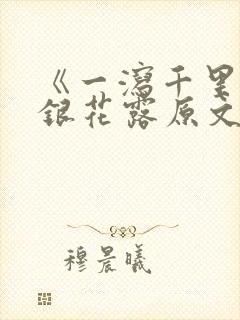 《一泻千里
银花露原文
穆晨曦